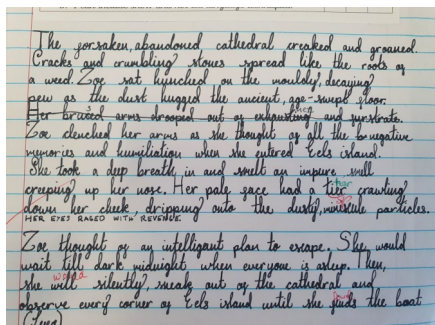 The forsaken, abandoned cathedral creaked and groaned.
Cracks and crumbling stones spread like the roots of
a weed. Zoe sat hunched on the mouldy, decaying
pew as the dust hugged the ancient, age-swept floor.
Her bruised arms drooped out of exhausting and furstrate.
Zoe clenched her arms as she thought of all the negative
memories and humiliation when she entered Eels island.
She took a deep breath in and smelt an impure smell
creeping up her nose. Her pale face had a tier tear crawling
down her cheek, dripping onto the dusty, miniscule particles.
HER EYES RAGED WITH REVENGE.
Zoe thought of an intelligant plan to escape. She would
wait till dark midnight when everyone is asleep. Then,
she will would silently, sneak out of the cathedral and
observe every corner of Eels island until she finds the boat